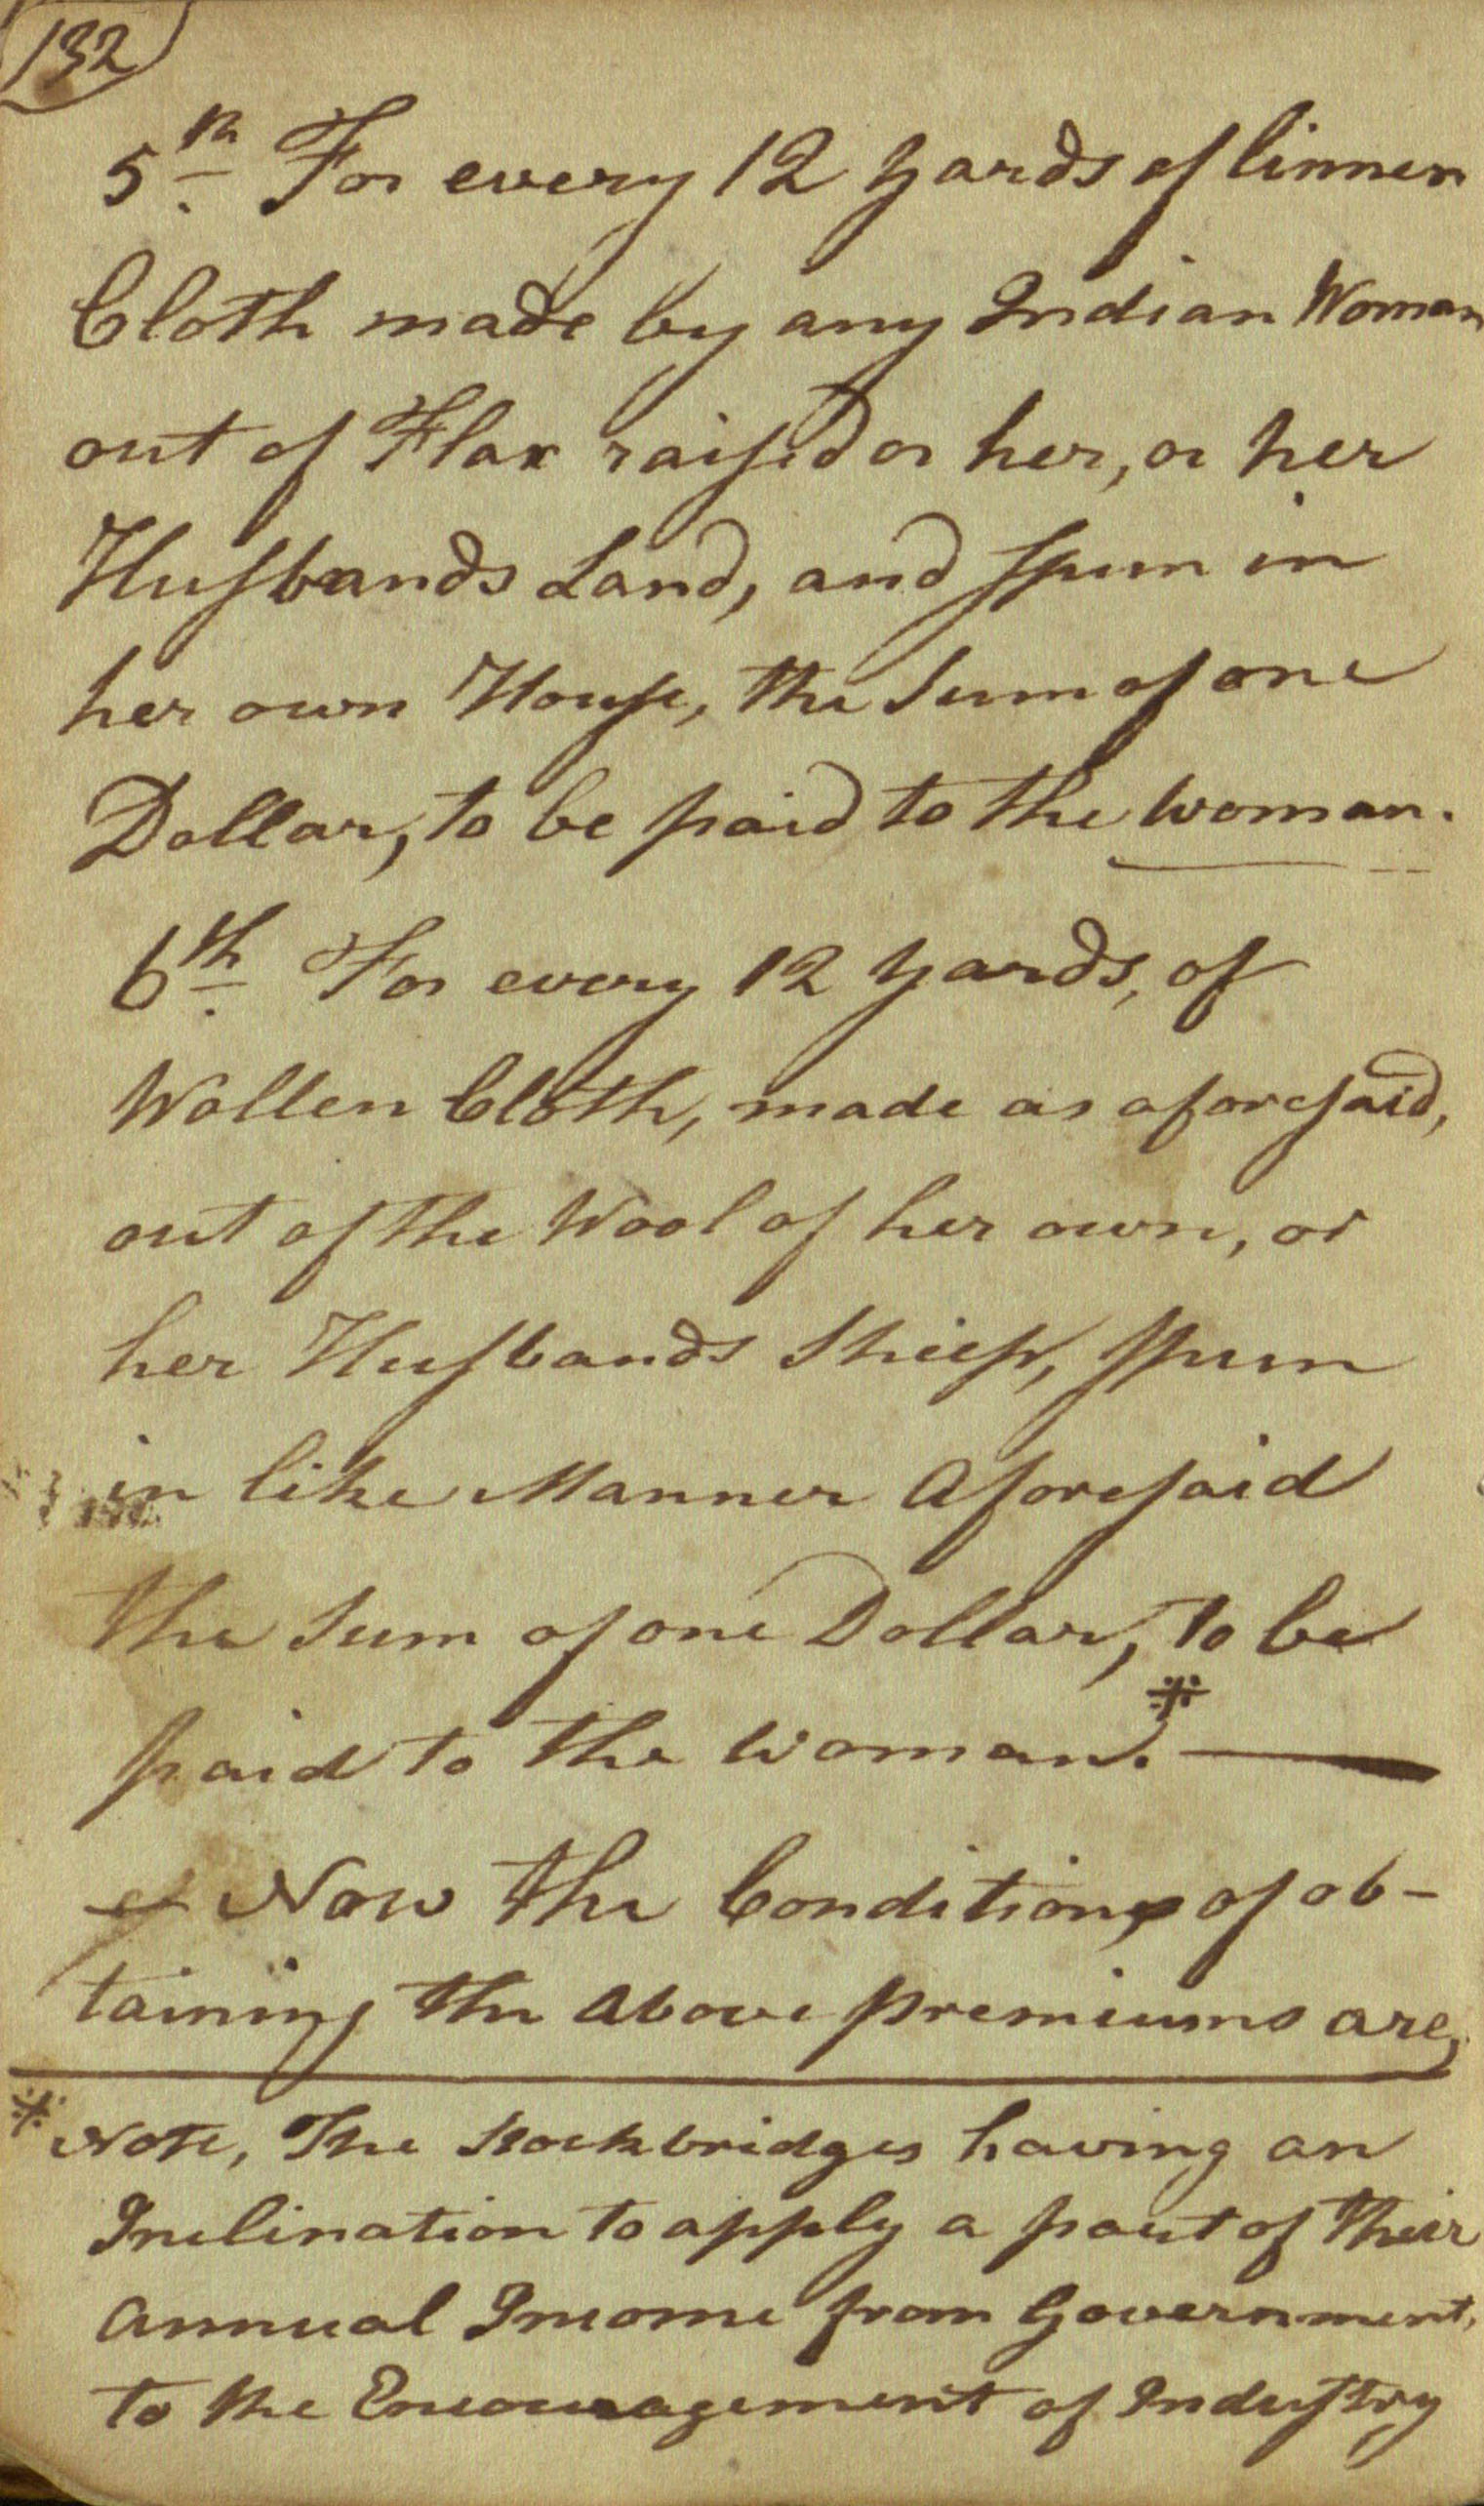 132
5th For every 12 yards of linnen
Cloth made by any Indian Woman
out of Flax raiſed on her, or her
Huſbands Land, and ſpun in
her own Houſe, the Sum of one
Dollar, to be paid to the woman.
6th For every 12 yards, of
Wollen Cloth, made as aforeſaid,
out of the Wool of her own, or
her Huſbands Sheep, ſpun
in like Manner Aforeſaid
the Sum of one Dollar, to be
paid to the woman.*
Now the Conditions of ob-
taining the Above premiums are,
* Note, The Stockbridges having an
Inclination to apply a part of their
Annual Income from Government,
to the Encouragement of Induſtry